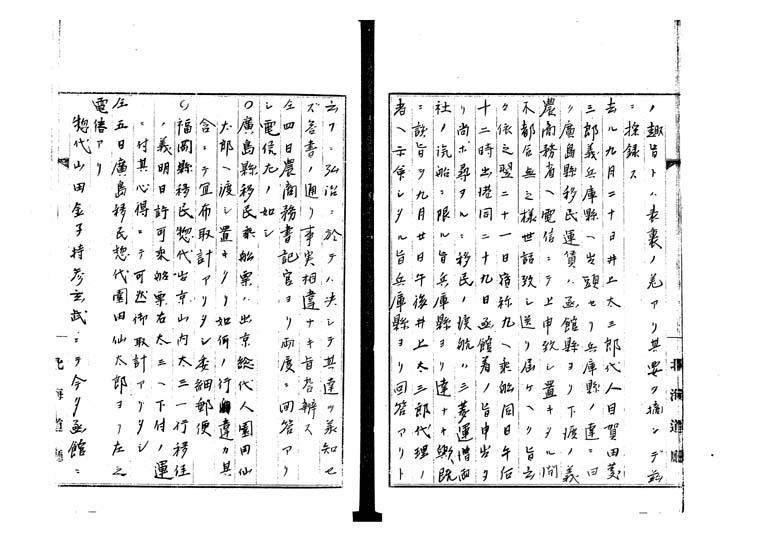 ノ趣旨トハ表裏ノ差アリ其要ヲ摘ンデ茲
ニ採録ス
去ル九月二十日井上太三郎代人目賀田茂
三郎義兵庫縣ヘ出頭セリ兵庫縣ノ達ニ曰
ク廣島縣移民運賃ハ函館縣ヨリ下渡ノ義
農商務省ヘ電信ニテ上申致シ置キタル間
不都合無之様世話致シ送リ届ケヘク旨云
々依之翌二十一日宿祢丸ヘ乗船同日午后
十二時出港同二十九日函館着ノ旨申出タ
リ尚ホ尋ヌルニ移民ノ渡航ハ三菱運借両
社ノ汽船ニ限ル旨兵庫縣ヨリ達ナキ歟既
ニ該旨ヲ九月廿日午後井上太三郎代理ノ
者ヘ示命シタル旨兵庫縣ヨリ回答アリト
云フニ弘沿ニ於テハ决シテ其達ヲ義知セ
ズ答書ノ通リ事実相違ナキ旨答辨ス
仝四日農商務書記官ヨリ両度ニ回答アリ
シ電信左ノ如シ
○廣島縣移民乗船票ハ出京総代人園田仙
太郎ヘ渡シ置キタリ如何ノ行違カ其
含ニテ宜布取計アリタシ委細郵便
○福岡縣移民惣代出京山内太三一行移住
ノ義明日許可乗船票右太三ヘ下付ノ運
ニ付其心得ニテ可然御取計アリタシ
仝五日廣島移民惣代園田仙太郎ヨリ左之
電信アリ
惣代山田金子持参玄武ニテ今夕函館ニ
北海道廳
北海道廳